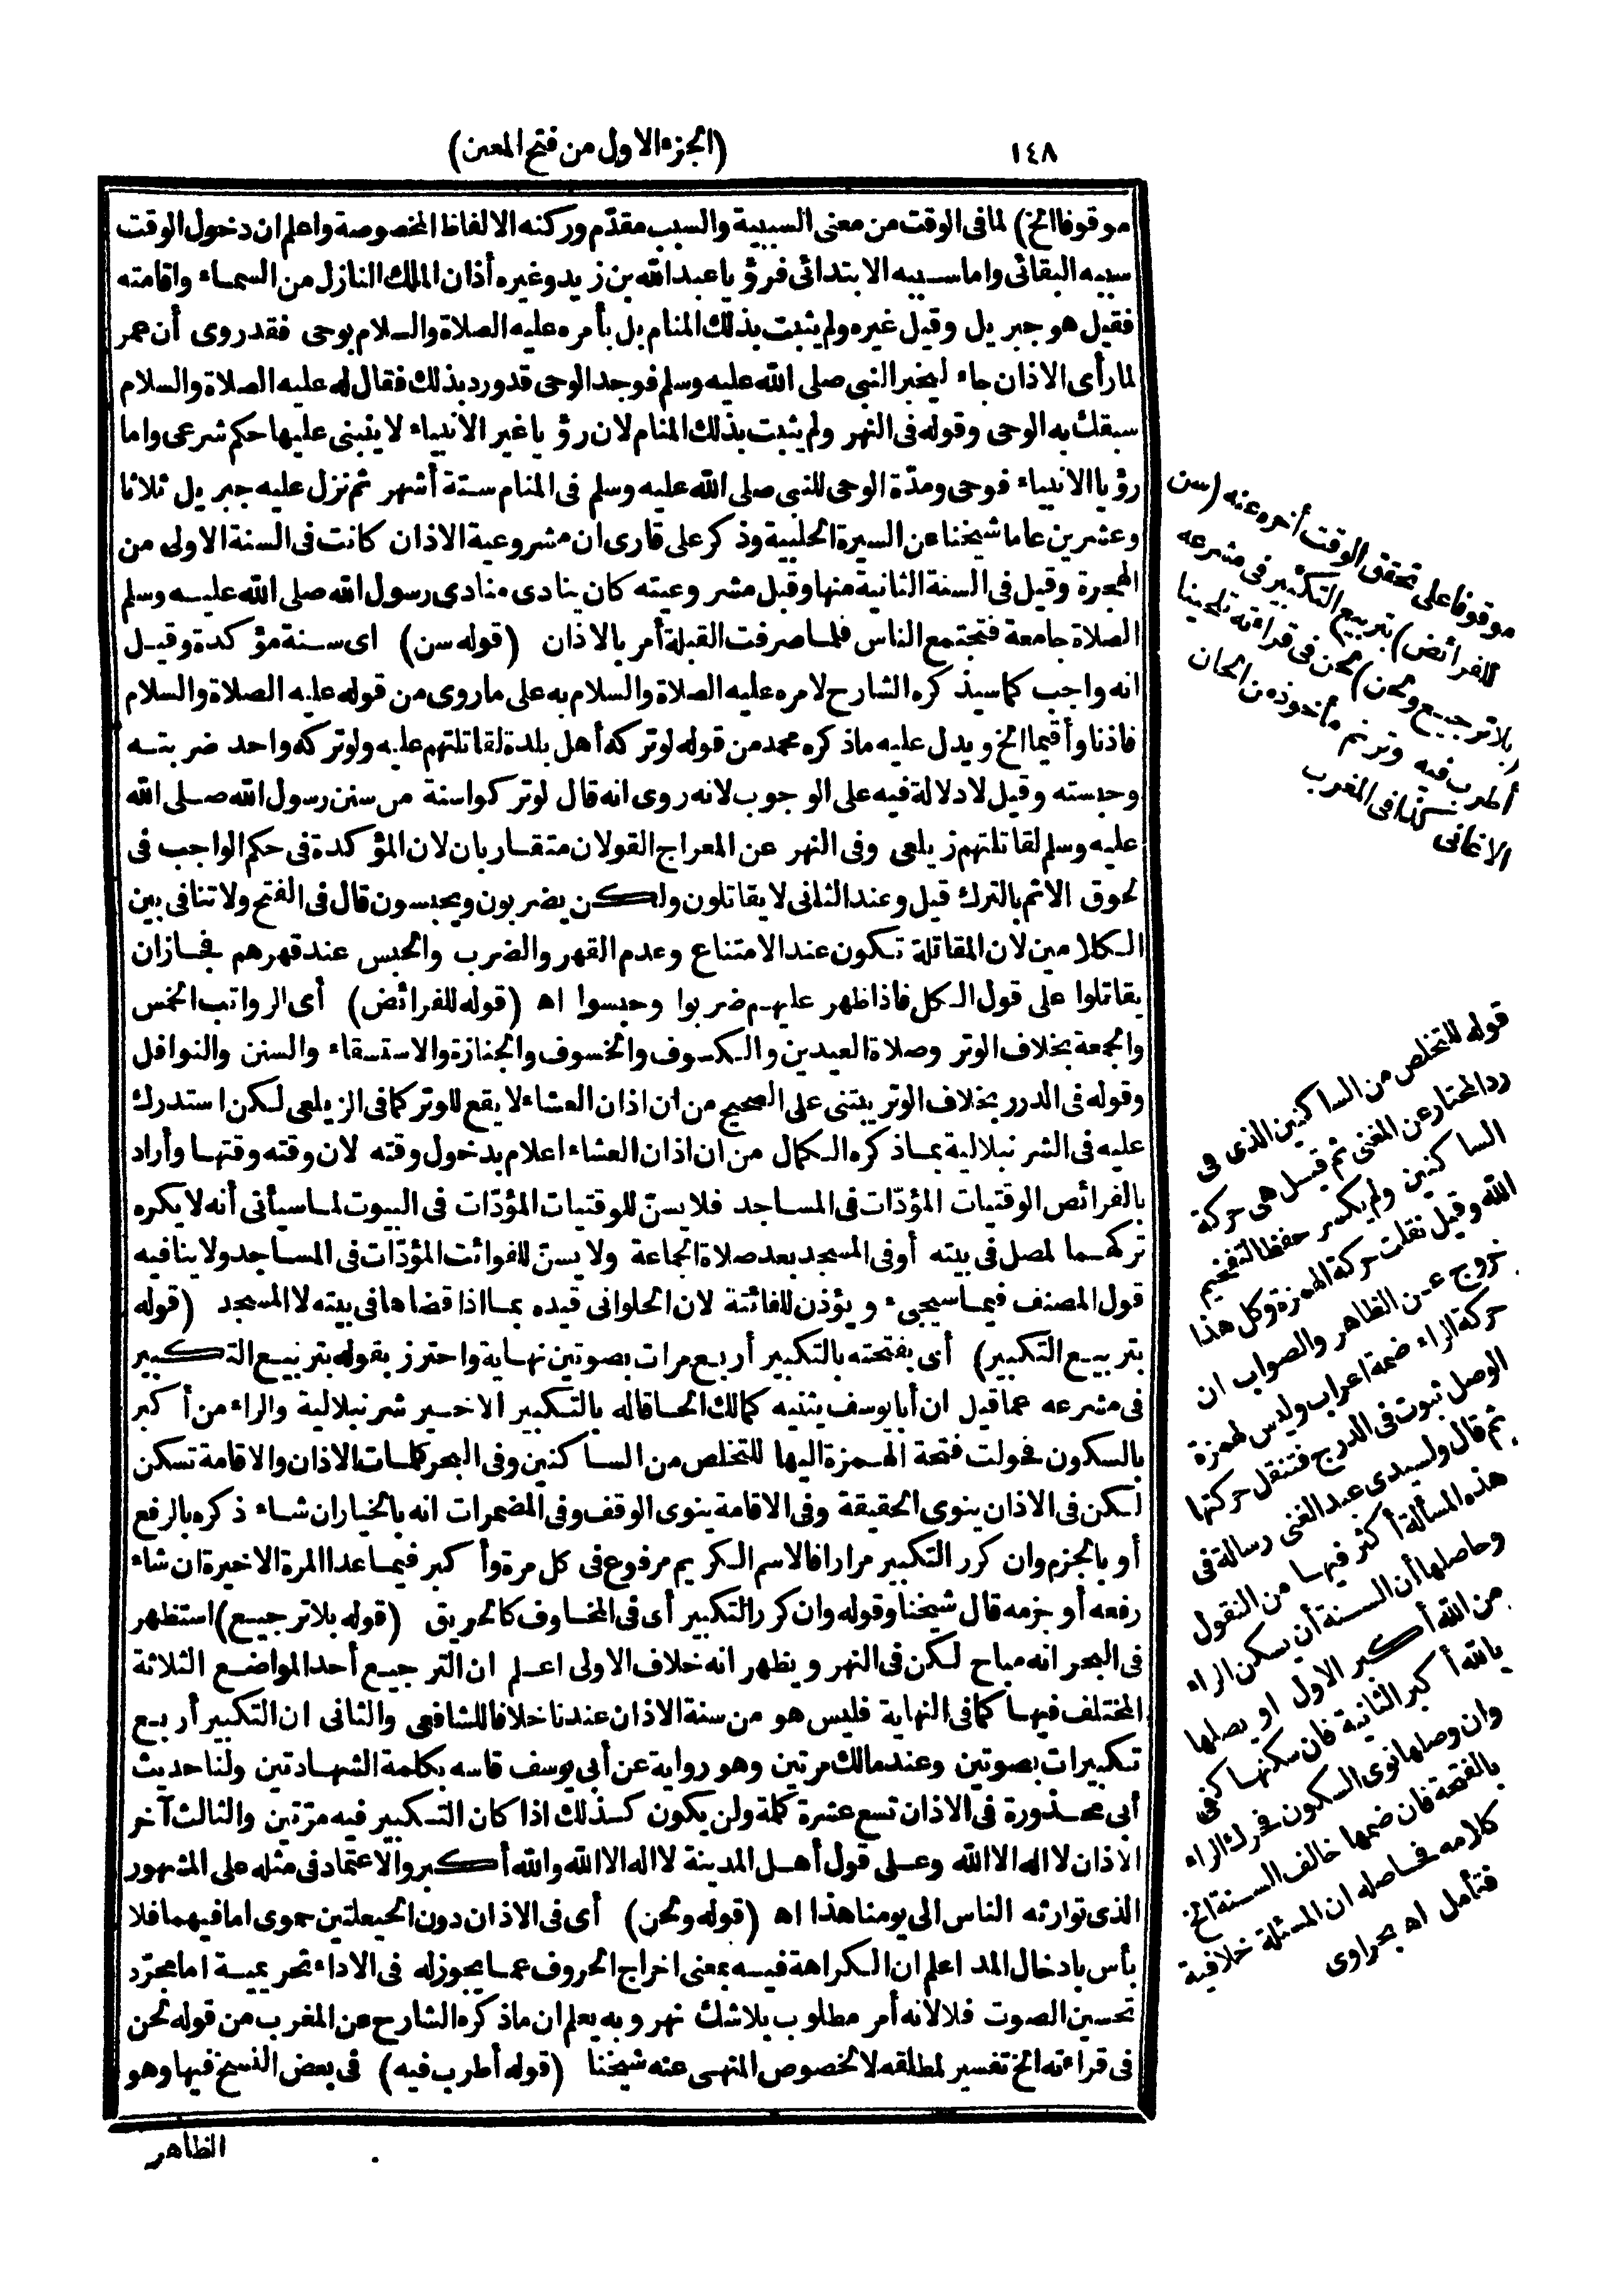 ١٤٨
(الجزء الاول من فتح المعين)
موقوفا الخ) لما فى الوقت من معنى السببية والسبب مقدّم وركنه الالفاظ المخصوصة واعلم ان دخول الوقت
سببه البقائى واما سببه الابتدائى فرؤيا عبد الله بن زيد وغيره أذان الملك النازل من السماء واقامته
فقيل هو جبريل وقيل غيره ولم يثبت بذلك المنام بل بأمره عليه الصلاة والسلام بوحى فقد روى أن عمر
لما رأى الاذان جاء ليخبر النبى صلى الله عليه وسلم فوجد الوحى قد ورد بذلك فقال له عليه الصلاة والسلام
سبقك به الوحى وقوله فى النهر ولم يثبت بذلك المنام لان رؤيا غير الانبياء لا ينبنى عليها حكم شرعى واما
رؤيا الانبياء فوحى ومدّة الوحى للنبى صلى الله عليه وسلم فى المنام ستة أشهر ثم نزل عليه جبريل ثلاثا
وعشرين عاما شيخنا عن السيرة الحلبية وذكر على قارى ان مشروعية الاذان كانت فى السنة الاولى من
الهجرة وقيل فى السنة الثانية منها وقبل مشروعيته كان ينادى منادى رسول الله صلى الله عليه وسلم
الصلاة جامعة فتجتمع الناس فلما صرفت القبلة أمر بالاذان (قوله سن) اى سنة مؤكدة وقيل
انه واجب كما سيذكره الشارح لامره عليه الصلاة والسلام به على ما روى من قوله عليه الصلاة والسلام
فاذنا وأقيما الخ ويدل عليه ما ذكره محمد من قوله لو تركه أهل بلدة لقاتلتهم عليه ولو تركه واحد ضربته
وحبسته وقيل لا دلالة فيه على الوجوب لانه روى انه قال لو تركوا سنة من سنن رسول الله صلى الله
عليه وسلم لقاتلتهم زيلعى وفى النهر عن المعراج القولان متقاربان لان المؤكدة فى حكم الواجب فى
لحوق الاثم بالترك قيل وعند الثانى لا يقاتلون ولكن يضربون ويحبسون قال فى الفتح ولا تنافى بين
الكلامين لان المقاتلة تكون عند الامتناع وعدم القهر والضرب والحبس عند قهرهم فجاز ان
يقاتلوا على قول الكل فاذا ظهر عليهم ضربوا وحبسوا اه (قوله للفرائض) أى الرواتب الخمس
والجمعة بخلاف الوتر وصلاة العيدين والكسوف والخسوف والجنازة والاستسقاء والسنن والنوافل
وقوله فى الدرر بخلاف الوتر يبتنى على الصحيح من ان اذان العشاء لا يقع للوتر كما فى الزيلعى لكن استدرك
عليه فى الشرنبلالية بما ذكره الكمال من ان اذان العشاء اعلام بدخول وقته لان وقته وقتها وأراد
بالفرائض الوقتيات المؤدّات فى المساجد فلا يسنّ للوقتيات المؤدّات فى البيوت لما سيأتى أنه لا يكره
تركهما لمصل فى بيته أو فى المسجد بعد صلاة الجماعة ولا يسنّ للفوائت المؤدّات فى المساجد ولا ينافيه
قول المصنف فيما سيجىء ويؤذن للفائتة لان الحلوانى قيده بما اذا قضاها فى بيته لا المسجد (قوله
بتربيع التكبير) أى يفتحته بالتكبير أربع مرات بصوتين نهاية واحترز بقوله بتربيع التكبير
فى مشرعه عما قيل ان أبا يوسف يثنيه كمالك الحاقا له بالتكبير الاخير شرنبلالية والراء من أكبر
بالسكون فحولت فتحة الهمزة اليها للتخلص من الساكنين وفى البحر كلمات الاذان والاقامة تسكن
لكن فى الاذان ينوى الحقيقة وفى الاقامة ينوى الوقف وفى المضمرات انه بالخيار ان شاء ذكره بالرفع
أو بالجزم وان كرر التكبير مرارا فالاسم الكريم مرفوع فى كل مرة وأكبر فيما عدا المرة الاخيرة ان شاء
رفعه أو جزمه قال شيخنا وقوله وان كرر التكبير أى فى المخاوف كالحريق (قوله بلا ترجيع) استظهر
فى البحر انه مباح لكن فى النهر ويظهر انه خلاف الاولى اعلم ان الترجيع أحد المواضع الثلاثة
المختلف فيها كما فى النهاية فليس هو من سنة الاذان عندنا خلافا للشافعى والثانى ان التكبير أربع
تكبيرات بصوتين وعند مالك مرتين وهو رواية عن أبى يوسف قاسه بكلمة الشهادتين ولنا حديث
أبى محذورة فى الاذان تسع عشرة كلمة ولن يكون كذلك اذا كان التكبير فيه مرّتين والثالث آخر
الاذان لا اله الا الله وعلى قول أهل المدينة لا اله الا الله والله أكبر والاعتماد فى مثله على المشهور
الذى توارثه الناس الى يومنا هذا اه (قوله ولحن) أى فى الاذان دون الحيعلتين حموى اما فيهما فلا
بأس بادخال المد اعلم ان الكراهة فيه بمعنى اخراج الحروف عما يجوز له فى الاداء تحريمية اما مجرّد
تحسين الصوت فلا لانه أمر مطلوب بلا شك نهر وبه يعلم ان ما ذكره الشارح عن المغرب من قوله لحن
فى قراءته الخ تفسير لمطلقه لا لخصوص المنهى عنه شيخنا (قوله أطرب فيه) فى بعض النسخ فيها وهو
الظاهر
موقوفا على تحقق الوقت أخره عنه (سن
للفرائض) بتربيع التكبير فى مشرعه
(بلا ترجيع ولحن) لحن فى قراءته تلحينا
أطرب فيه وترنم مأخوذ من الحان
الاغانى كذا فى المغرب
قوله للتخلص من الساكنين الذى فى
رد المحتار عن المغنى ثم قيل هى حركة
الساكنين ولم يكسر حفظا لتفخيم
الله وقيل نقلت حركة الهمزة وكل هذا
خروج عن الظاهر والصواب ان
حركة الراء ضمة اعراب وليس لهمزة
الوصل ثبوت فى الدرج فتنقل حركتها
ثم قال ولسيدى عبد الغنى رسالة فى
هذه المسألة أكثر فيها من النقول
وحاصلها أن السنة أن يسكن الراء
من الله أكبر الاول او يصلها
بالله أكبر الثانية فان سكنها كفى
وان وصلها نوى السكون فحرك الراء
بالفتحة فان ضمها خالف السنة الخ
كلامه فحاصله ان المسئلة خلافية
فتأمل اه بحراوى